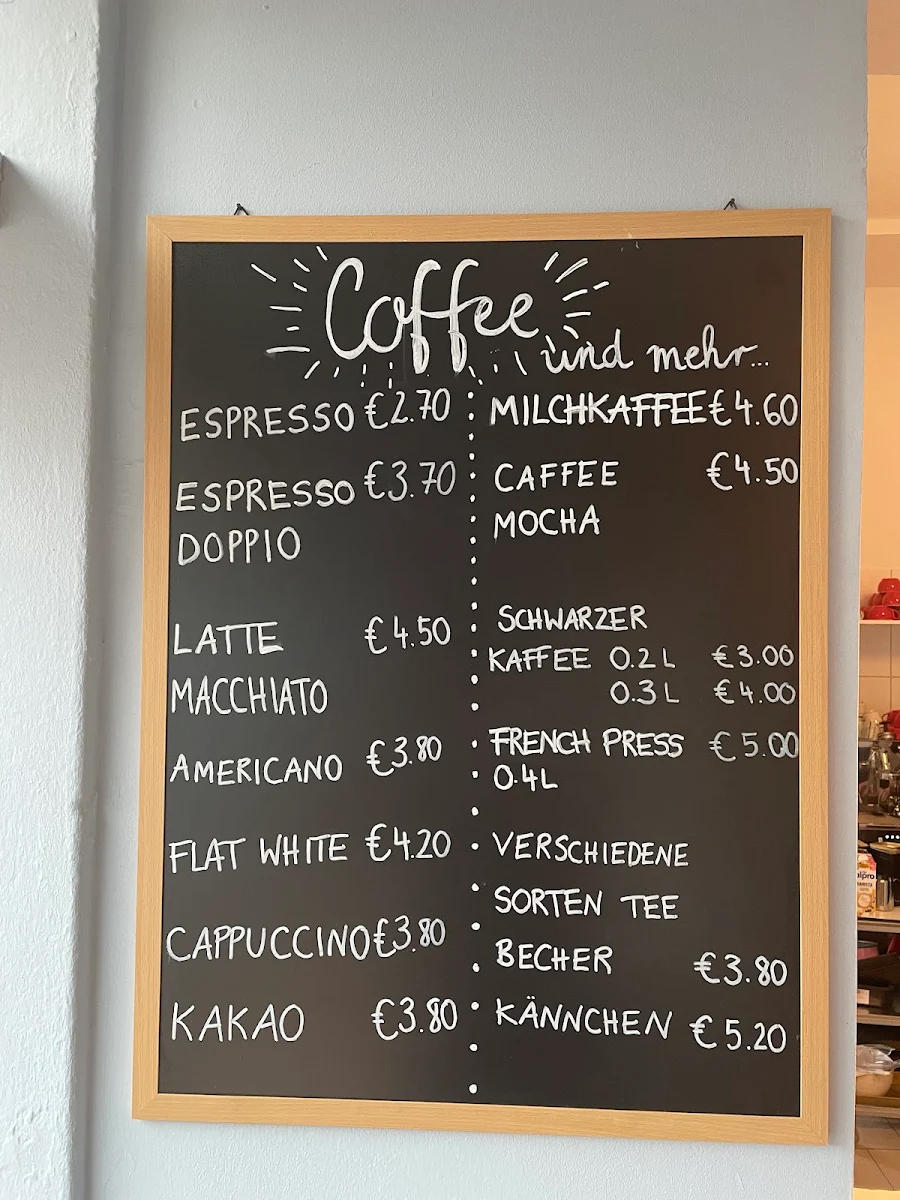 Coffee
und mehr...
ESPRESSO €2.70
ESPRESSO €3.70
DOPPIO
LATTE €4.50
MACCHIATO
AMERICANO €3.80
FLAT WHITE €4.20
CAPPUCCINO €3.80
KAKAO €3.80
MILCHKAFFEE €4.60
CAFFEE €4.50
MOCHA
SCHWARZER
KAFFEE 0.2L €3.00
0.3L €4.00
FRENCH PRESS €5.00
0.4L
VERSCHIEDENE
SORTEN TEE
BECHER €3.80
KÄNNCHEN €5.20